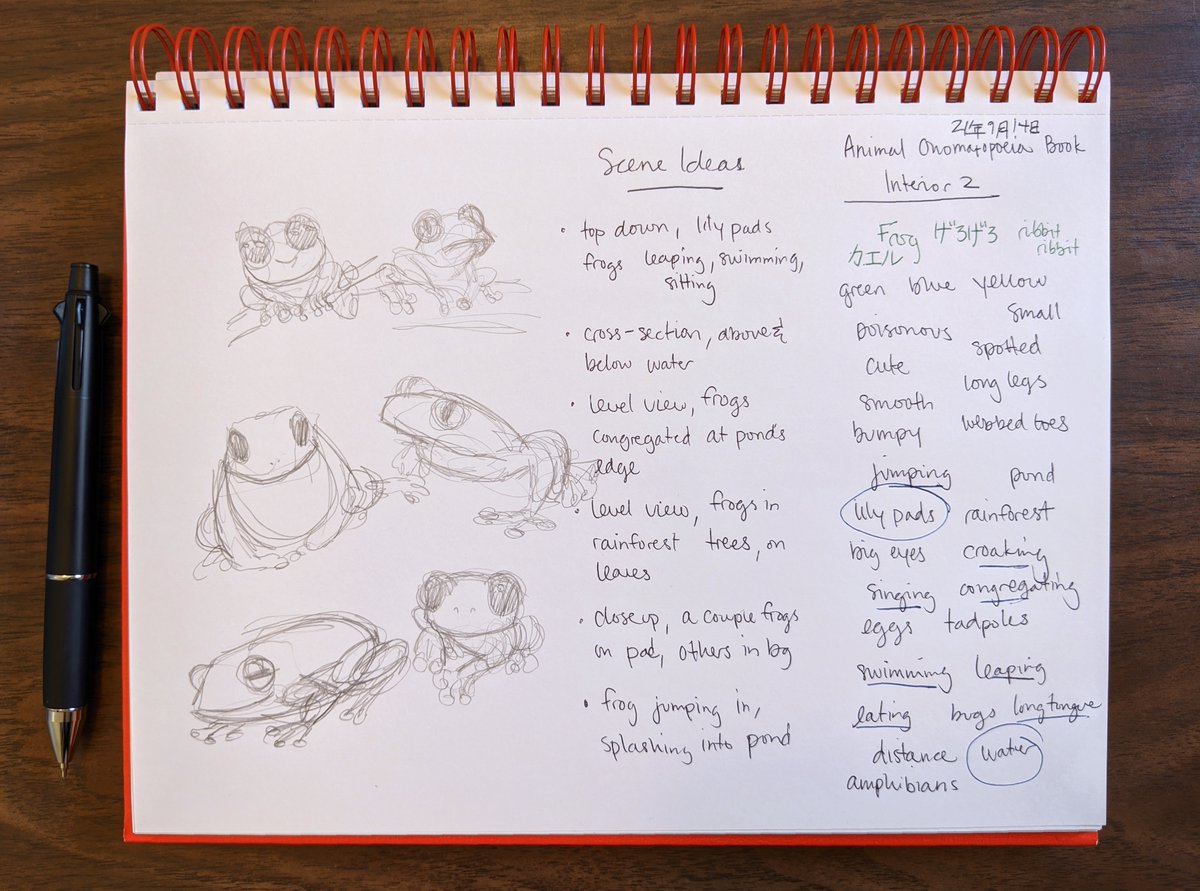 Scene Ideas
• top down, lily pads
frogs leaping, swimming,
sitting
• cross-section, above &
below water
• level view, frogs
congregated at pond's
edge
• level view, frogs in
rainforest trees, on
leaves
• closeup, a couple frogs
on pad, others in bg
• frog jumping in,
splashing into pond
21年9月14日
Animal Onomatopoeia Book
Interior 2
Frog げろげろ ribbit
カエル ribbit
green blue yellow
small
poisonous
spotted
cute
long legs
smooth
webbed toes
bumpy
jumping pond
lily pads rainforest
big eyes croaking
singing congregating
eggs tadpoles
swimming leaping
eating bugs long tongue
distance water
amphibians